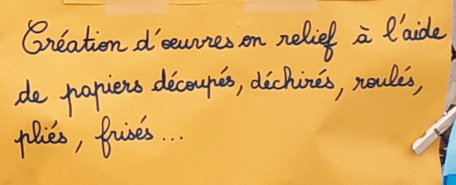 Création d'œuvres en relief à l'aide
de papiers découpés, déchirés, roulés,
pliés, frisés...